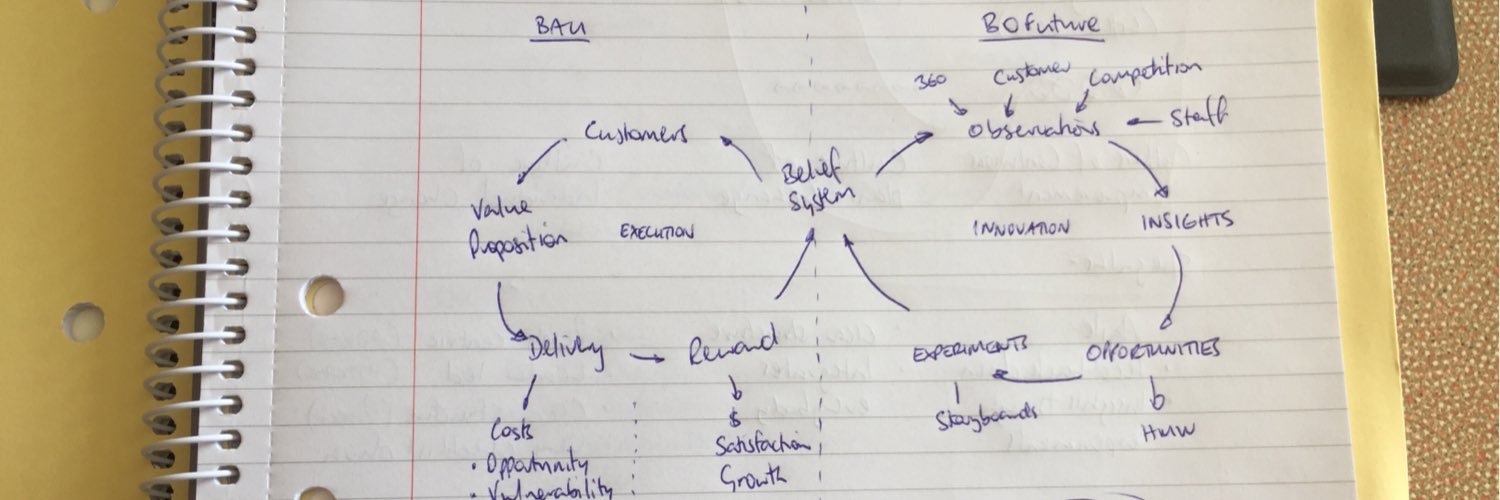 BAU
BOFuture
360 Customer Competition
Customers
Observations
Staff
Belief
System
Value
Proposition
EXECUTION
INNOVATION
INSIGHTS
Delivery
Reward
EXPERIMENTS
OPPORTUNITIES
Costs
• Opportunity
• Vulnerability
$
Satisfaction
Growth
Storyboards
HMW